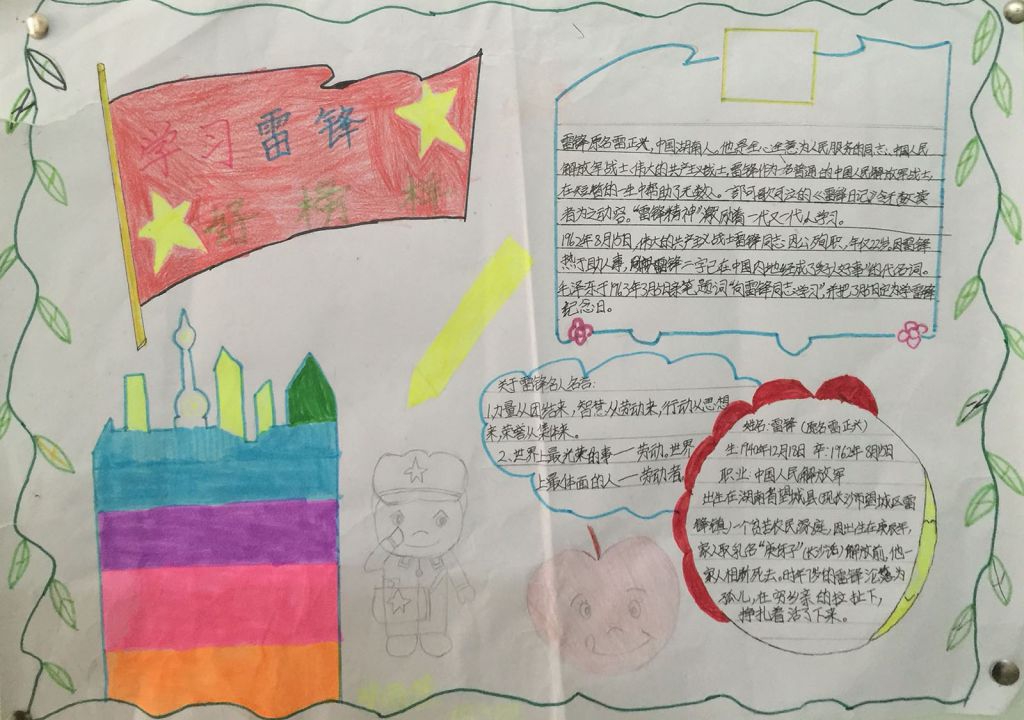 学习雷锋
好榜样
雷锋原名雷正兴，中国湖南人。他是全心全意为人民服务的同志、中国人民
解放军战士，伟大的共产主义战士。雷锋作为一名普通的中国人民解放军战士，
在短暂的一生中帮助了无数人。一部可歌可泣的《雷锋日记》令无数读
者为之动容。“雷锋精神”激励着一代又一代人学习。
1962年8月15日，伟大的共产主义战士雷锋同志因公殉职，年仅22岁。因雷锋
热于助人事，雷锋二字已在中国内地经成了好人好事的代名词。
毛泽东于1963年3月5日亲笔题词“向雷锋同志学习”，并把3月5日定为学雷锋
纪念日。
关于雷锋名人名言：
1.力量从团结来，智慧从劳动来，行动从思想
来，荣誉从集体来。
2、世界上最光荣的事——劳动。世界
上最体面的人——劳动者。
姓名：雷锋（原名雷正兴）
生：1940年12月18日 卒：1962年8月15日
职业：中国人民解放军
出生在湖南省望城县（现长沙市望城区雷
锋镇）一个贫苦农民家庭，因出生在庚辰年，
家人取乳名“庚伢子”（长沙话）解放前，他一
家人相继死去。时年7岁的雷锋沦为
孤儿，在穷乡亲的拉扯下，
挣扎着活了下来。